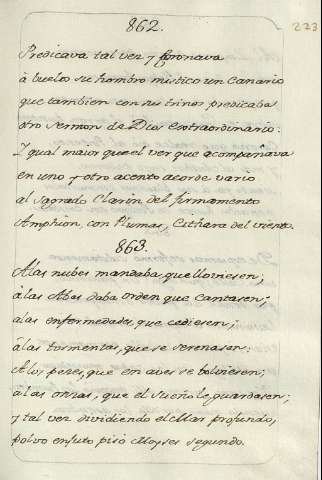 862.
223
Predicava tal vez y Coronava
à buelos su hombro mistico un Canario
que tambien con sus trinos predicaba
otro Sermon de Dios Extraordinario:
Y qual maior que el ver que acompañava
en uno y otro acento acorde vario
al Sagrado Clarin del firmamento
Amphion, con Plumas, Cithara del viento.
863.
A las nubes mandaba, que lloviesen;
à las Abes daba orden que cantasen;
a las enfermedades, que cediesen;
à las tormentas, que se serenasen:
A los pezes, que en aves se bolviesen;
a las onzas, que el sueño le guardasen;
y tal vez dividiendo el Mar profundo,
polvo enjuto pisó Moyses segundo.